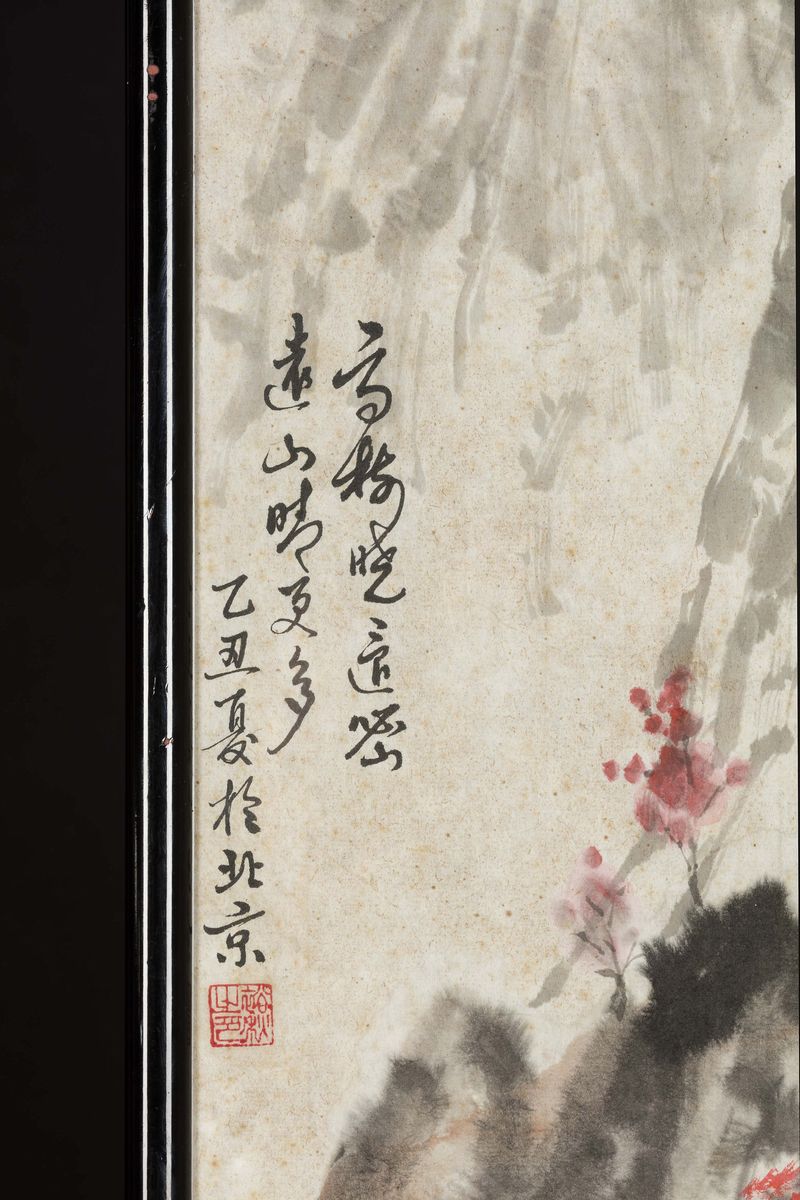 高樹曉還密
遠山晴更多
乙丑夏於北京